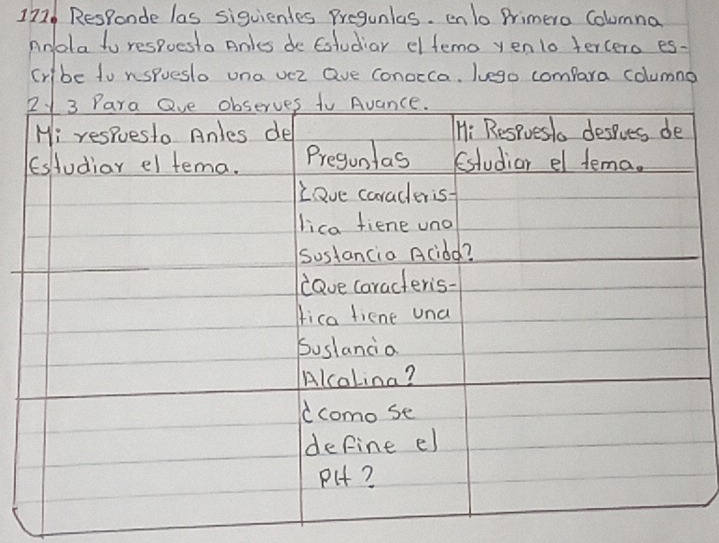 177. Responde las siguientes preguntas. en la Primera Columna
Anota tu respuesta Antes de Estudiar el tema y en la tercera es-
cribe tu respuesta una vez Que conozca. luego compara columna
2 y 3 Para Que observes tu Avance.
Mi respuesta Antes de
Estudiar el tema.
Preguntas
Mi Respuesta despues de
Estudiar el tema.
¿Que caracteris-
tica tiene una
Sustancia Acida?
¿Que caracteris-
tica tiene una
Sustancia
Alcalina?
¿como se
define el
PH?